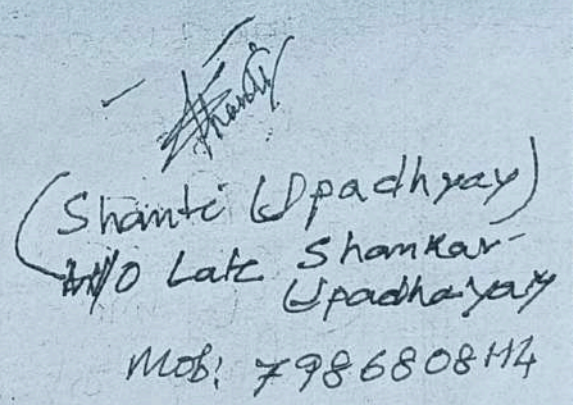 Shanti
(Shanti Upadhyay)
W/O Late Shankar
Upadhayay
Mob: 7986808114